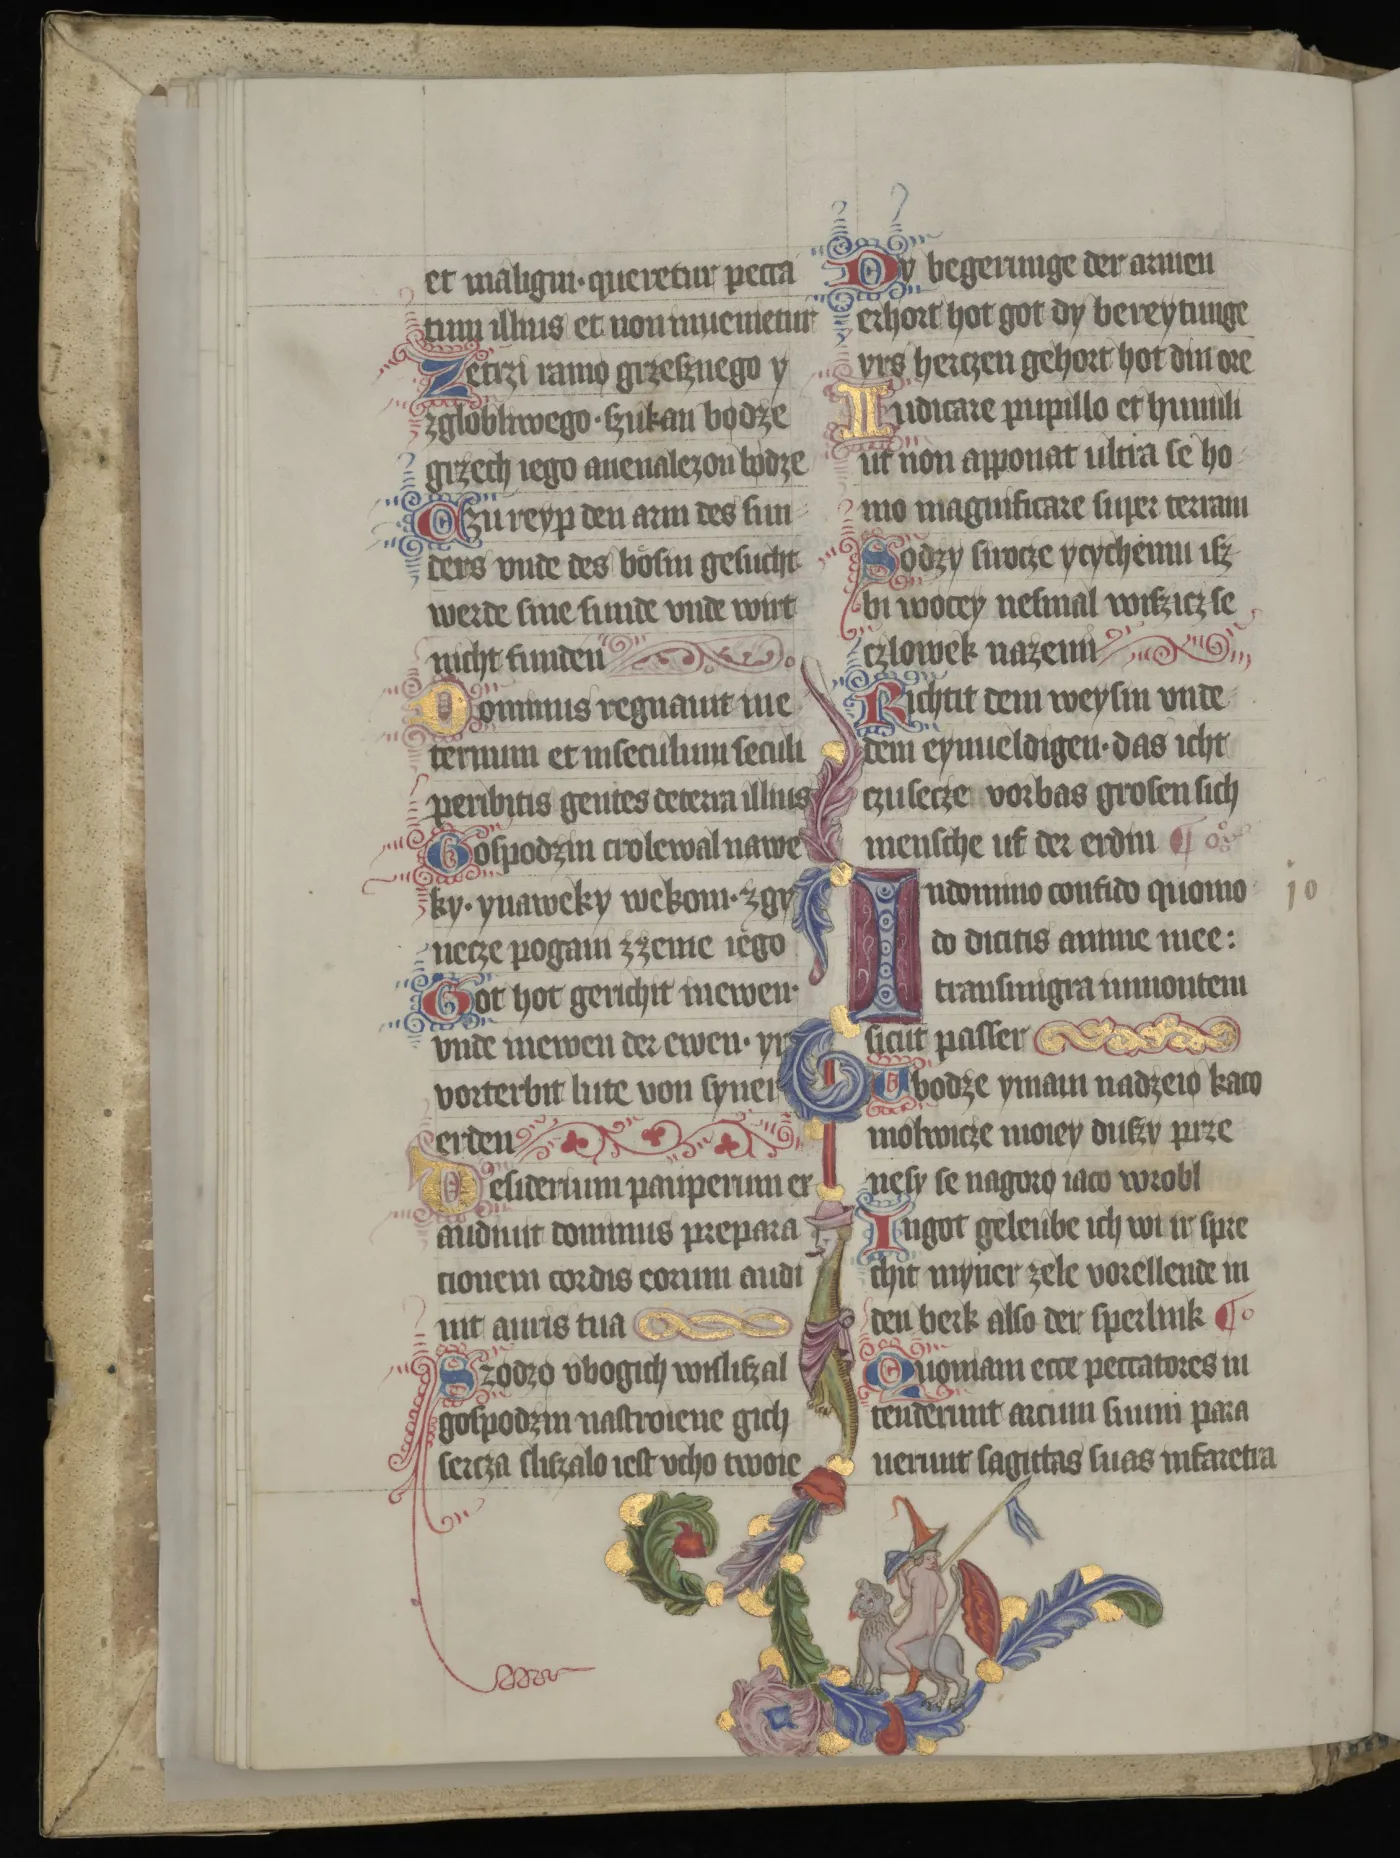 et maligni · queretur pecca
tum illius et non invenietur
Zetrzi ramo grzesznego y
zglobliwego · szukan bodze
grzech iego anenalezon bodze
Czureyp den arm des sun
ders vnde des bösin gesucht
werde sine sunde vnde wirt
nicht funden
Dominus regnauit ine
ternum et inseculum seculi
peribitis gentes deterra illius
Gospodzin crolewal nawe
ky · ynaweky wekom · zgy
necze pogani zzeme iego
Got hot gerichit inewen ·
vnde inewen der ewen · yr
vorterbit lute von syner
erden
Desiderium pauperum ex
audiuit dominus prepara
cionem cordis eorum audi
uit auris tua
Szodzo vbogich wisliszal
gospodzin nastroiene gich
sercza sliszalo iest vcho twoie
Dy begerunge der armen
erhort hot got dy bereytunge
yrs hertzen gehort hot din ore
Iudicare pupillo et humili
ut non apponat ultra se ho
mo magnificare super terram
Sodzy sirocze ycychemu isz
bi wocey nesmal wiszicz se
czlowek nazemi
Richtit dem weysin vnde
dem eynueldigen · das icht
czusecze vorbas grosen sich
mensche uf der erdin
Indomino confido quomo
do dicitis anime mee :
transmigra inmontem
sicut passer
W bodze ymam nadzeio kaco
molwicze moiey duszy prze
nesy se nagoro iaco wrobl
Ingot geleube ich wi ir spre
chit myner zele vorellende in
den berk also der sperlink
Quoniam ecce peccatores in
tenderunt arcum suum para
uerunt sagittas suas infaretra
10